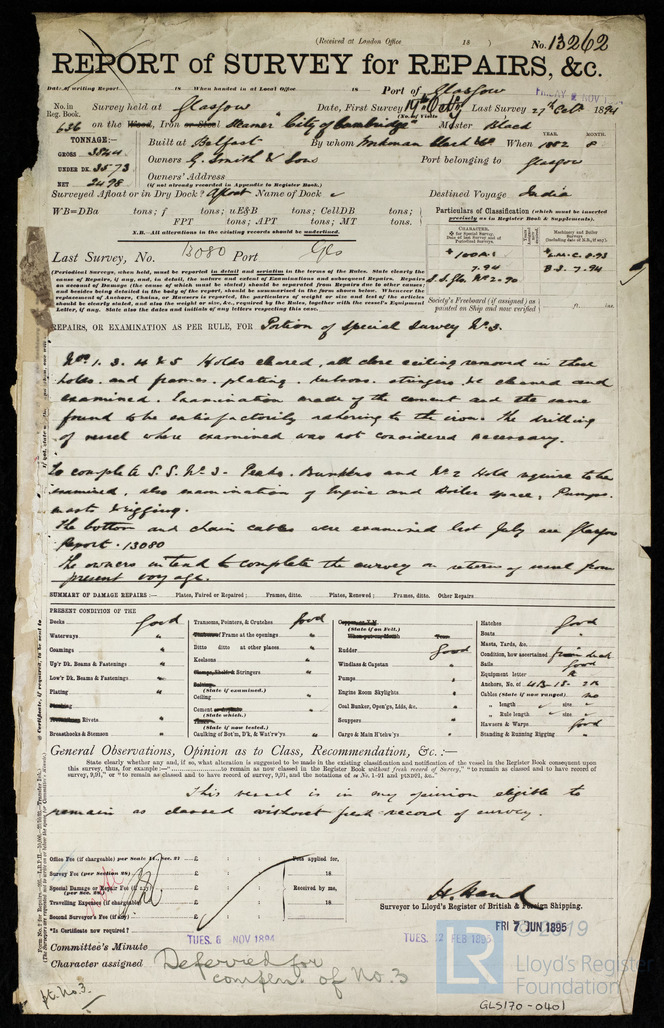 (Received at London Office 18 ) No. 13262
REPORT of SURVEY for REPAIRS, &c.
Date of writing Report 18 When handed in at Local Office 18 Port of Glasgow
FRIDAY 2 NOV
No. in Reg. Book. Survey held at Glasgow Date, First Survey 19th Octr Last Survey 27th Octr 1894
(No. of Visits )
636 on the Wood, Iron or Steel Steamer "City of Cambridge" Master Black
TONNAGE:— Built at Belfast By whom Workman Clark & Co When 1882 8
YEAR. MONTH.
GROSS 3844
Owners G. Smith & Sons Port belonging to Glasgow
UNDER DK. 3573
Owners' Address
NET 2498
(if not already recorded in Appendix to Register Book.)
Surveyed Afloat or in Dry Dock? Afloat Name of Dock Destined Voyage India
WB=DBa tons; f tons; uE&B tons; CellDB tons;
FPT tons; APT tons; MT tons.
N.B.—All alterations in the existing records should be underlined.
Particulars of Classification (which must be inserted precisely as in Register Book & Supplements).
CHARACTER.
Machinery and Boiler Surveys
100 A1
7.94
S.S. Gls No 2-90
L.M.C. 8.93
B.S. 7.94
Last Survey, No. 13080 Port Gls
(Periodical Surveys, when held, must be reported in detail and seriatim in the terms of the Rules. State clearly the
cause of Repairs, if any, and, in detail, the nature and extent of Examinations and subsequent Repairs. Repairs
on account of Damage (the cause of which must be stated) should be separated from Repairs due to other causes;
and besides being detailed in the body of the report, should be summarized in the form shown below. Whenever the
replacement of Anchors, Chains, or Hawsers is reported, the particulars of weight or size and test of the articles
should be clearly stated, and also the weight or size, &c., required by the Rules, together with the vessel's Equipment
Letter, if any. State also the dates and initials of any letters respecting this case.
Society's Freeboard (if assigned) as painted on Ship and now verified ft. ins.
REPAIRS, OR EXAMINATION AS PER RULE, FOR Portion of Special Survey No. 3.
Nos. 1. 3. 4 & 5 Holds cleared, all close ceiling removed in these
holes and frames, plating, stringers, &c cleaned and
examined. Examination made of the cement and the same
found to be satisfactorily adhering to the iron. The drilling
of vessel where examined was not considered necessary.
To complete S.S. No. 3- Peaks. Bunkers and No 2 Hold require to be
examined, also examination of Engine and Boiler space, Pumps.
masts & rigging.
The bottom and chain cables were examined last July see Glasgow
report. 13080
The owners intend to complete the survey on return of vessel from
present voyage.
SUMMARY OF DAMAGE REPAIRS :— Plates, Faired or Repaired ; Frames, ditto. Plates, Renewed ; Frames, ditto. Other Repairs
PRESENT CONDITION OF THE
Decks Good
Waterways "
Coamings "
Up'r Dk. Beams & Fastenings "
Low'r Dk. Beams & Fastenings "
Plating "
Rivets "
Breasthooks & Stemson "
Transoms, Pointers, & Crutches Good
Frame at the openings "
Ditto ditto at other places "
Keelsons "
Stringers "
(State if examined.)
Ceiling "
Cement "
(State which.)
(State if now tested.)
Caulking of Bot'm, D'k, & Wat'rw'ys "
(State if on Felt.)
Rudder Good
Windlass & Capstan "
Pumps "
Engine Room Skylights "
Coal Bunker, Open'gs, Lids, &c. "
Scuppers "
Cargo & Main H'tchw'ys "
Hatches Good
Boats "
Masts, Yards, &c. "
Condition, how ascertained from deck
Sails Good
Equipment letter R
Anchors, No. of 4B. 1S. 2K
Cables (State if now ranged) no
" length size
" Rule length size
Hawsers & Warps Good
Standing & Running Rigging "
General Observations, Opinion as to Class, Recommendation, &c. :—
State clearly whether any and, if so, what alteration is suggested to be made in the existing classification and notification of the vessel in the Register Book consequent upon
this survey, thus, for example :—" to remain as now classed in the Register Book without fresh record of Survey," "to remain as classed and to have record of
survey, 9,91," or "to remain as classed and to have record of survey, 9,91, and the notations of
This vessel is in my opinion eligible to
remain as classed without fresh record of survey.
Office Fee (if chargeable) per Scale £ : : Fees applied for,
Survey Fee (per Section 28) £ : : 18
Special Damage or Repair Fee (if any) £ : : Received by me,
Travelling Expenses (if chargeable) £ : : 18
Second Surveyor's Fee (if any) £ : :
*Is Certificate now required?
H. Hand
Surveyor to Lloyd's Register of British & Foreign Shipping.
FRI 7 JUN 1895
TUES. 6 NOV 1894
TUES. 12 FEB 1895
Committee's Minute
Character assigned Deferred for
complen. of No. 3
pt. No. 3
© 2019
LR
Lloyd's Register
Foundation
GLS170-0401